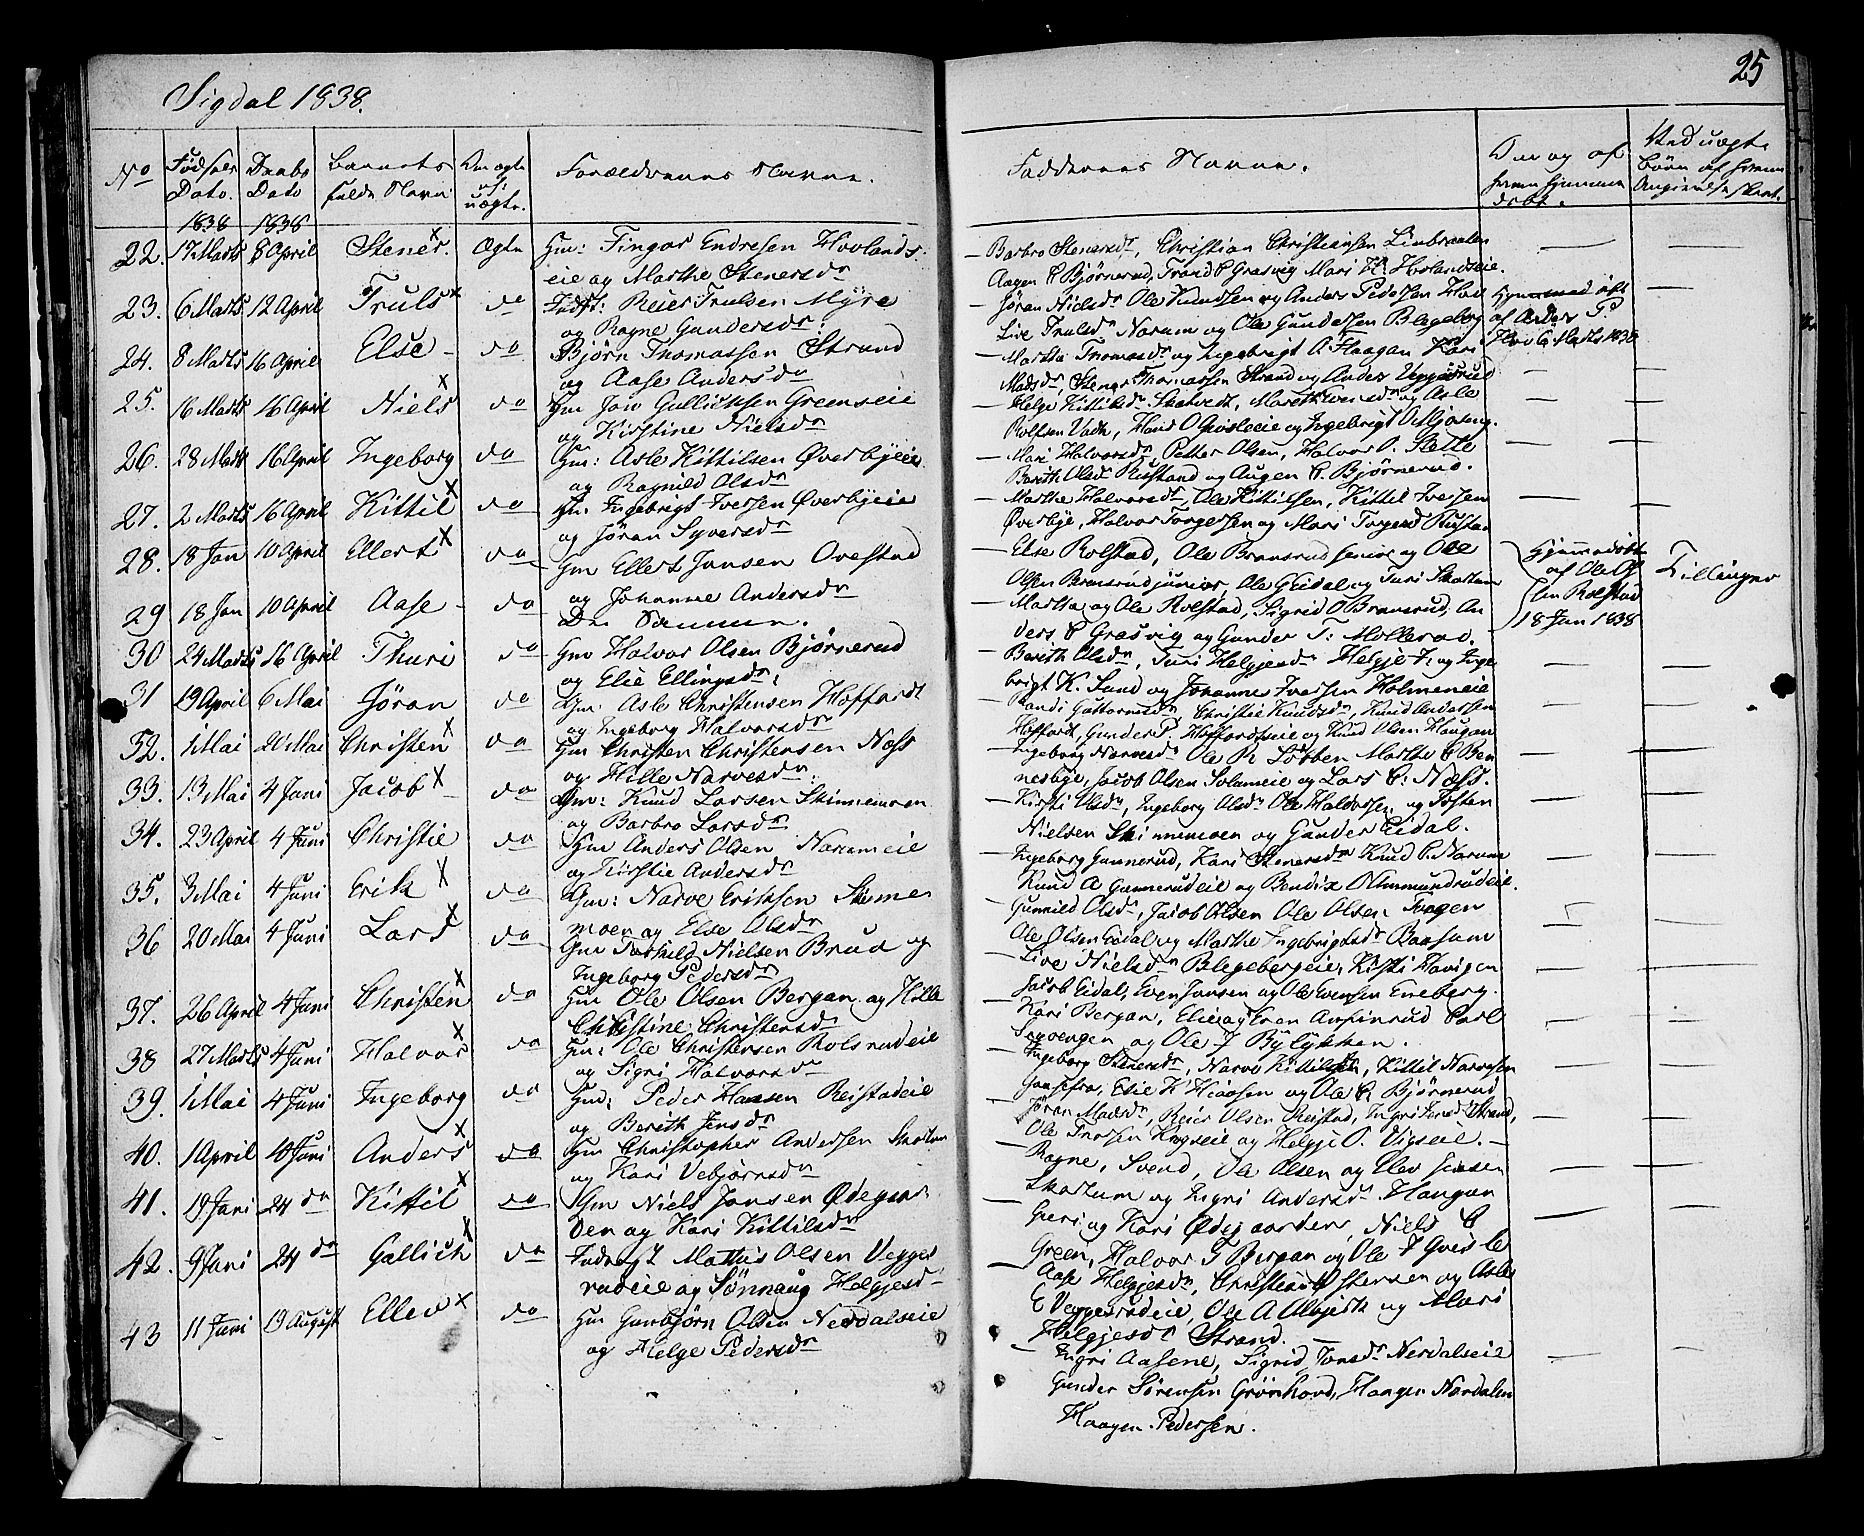 Sigdal 1838.
25
No
Fødsels Dato. 1838
Daabs Dato 1838
Barnets fulde Navn
Om ægte el. uægte.
Forældrenes Navne.
Faddernes Navne.
Om og af hvem hjemmedøbt.
22. 17 Marts 8 April Stener. Ægte Gm: Fingar Endresen Hovlands-
eie og Marthe Stenersdr
— Barbro Stenersdr, Christian Christiansen Linbraaten
Aagen C Bjørnerud, Trond C Grasvig Mari H. Hovlandseie.
23. 6 Marts 12 April Truls do Indst. Reier Trulsen Myre
og Ragne Gundersdr.
— Jøran Nielsdr Ole Knudsen og Anders Pedersen Hovl
Live Trulsdr Narum og Ole Gundersen Blegeberg
Hjemmedøbt af Anders P. Hovl 6 Marts 1838
24. 8 Marts 16 April Else do Bjørn Thomassen Strand
og Aase Andersdr
— Martha Thomasdr og Ingebrigt A. Haagan Kari
Madsdr Stener Thomassen Strand og Anders Veggesrud
25. 16 Marts 16 April Niels do Gm Jon Gullichsen Greenseie
og Kirstine Nielsdr
— Helge Kittilsdr Skatvedt, Mareth Evensdr og Asle
26. 28 Marts 16 April Ingeborg do Gm: Asle Kittilsen Øverbyeie
og Ragnild Olsdr
— Mari Halvorsdr, Petter Olsen, Halvor O. Slette
Berith Olsdr Rustand og Augen C. Bjørnerud.
27. 2 Marts 16 April Kittil do Gm. Ingebrigt Iversen Øverbyeie
og Jøran Syversdr
— Marthe Halvorsdr, Ole Kittilsen, Kittil Iversen
Øverbye, Halvor Torgersen og Mari Torgersd Rustan
28. 18 Jan 10 April Ellert do Gm Ellert Jansen Ovestad
og Johanne Andersdr
— Else Rolstad, Ole Bransrud senior og Ole
Olsen Bransrud junior, Ole G Eidal og Turi Skartum
Hjemmedøbt af Ole Ol sen Rolstad 18 Jan 1838
Tillinger
29 18 Jan 10 April Aase do De Samme.
— Martha og Ole Rolstad, Sigrid O Bransrud, An
ders C Grasvig og Gunder T. Mollerud.
30 24 Marts 16 April Thuri do Gm Halvor Olsen Bjørnerud
og Elie Ellingsdr.
— Berith Olsdr, Turi Helgjesdr Helgje T. og Inge
brigt K. Sand og Johannes Iversen Holmeneie
31 19 April 6 Mai Jøran do Gm: Asle Christensen Hoffardt
og Ingeborg Halvorsdr
— Randi Guttormsdr Christie Knudsdr, Knud Andersen
Hoffart, Gunder P. Hoffardtseie og Knud Olsen Haugan
32. 1 Mai 20 Mai Christen do Gm Christen Christensen Næss
og Hille Narvesdr.
— Ingeborg Narvesdr Ole R. Lobben Marthe C Ben
neslye, Jacob Olsen Solemeie og Lars C: Næss.
33. 13 Mai 4 Juni Jacob do Gm: Knud Larsen Skinnemoen
og Barbro Larsdr
— Kirsti Olsdr, Ingeborg Olsdr Ole Halvorsen og Tosten
Nielsen Skinnemoen og Gunder Eidal.
34. 23 April 4 Juni Christie do Gm Anders Olsen Narumeie
og Kirstie Andersdr
— Ingeborg Gunnerud, Kari Stenersdr Knud P. Narum
Knud A Gunnerudeie og Bendix O Ammundrudeie.
35. 3 Mai 4 Juni Erik do Gm: Narve Eriksen Skinne
moen og Else Olsdr
— Gunnild Olsdr, Jacob Olsen Ole Olsen
Ole Olsen Eidal og Marthe Ingebrigtsdr Baasum
36 20 Mai 4 Juni Lars do Gm Torkild Nielsen Brua og
Ingeborg Pedersdr
— Live Nielsdr Blegebergeie, Kisti Havigen
Jacob Eidal, Even Jansen og Ole Evensen Eneberg.
37. 26 April 4 Juni Christen do Gm Ole Olsen Bergan og Hille
Christine Christensdr
— Kari Bergan, Elie og Even Amfinrud Carl
Sevoengen og Ole J Bylykken.
38 27 Marts 4 Juni Halvor do Gm: Ole Christensen Rolsrudeie
og Sigri Halvorsdr
— Ingeborg Stenersdr, Narve Kittilsen, Kittil Narvesen
Elie H Haasen og Ole C Bjørnerud
39. 1 Mai 4 Juni Ingeborg do Gm: Peder Hansen Reistadeie
og Berith Jensdr
— Jøran Madsdr, Reier Olsen Reistad, Ingri Jensd Strand,
Ole Trosen Kragseie og Helgje O. Vigseie. —
40. 1 April 10 Juni Anders do Gm Christopher Andersen Skartum
og Kari Vebjørnsdr
— Ragne, Svend, Ole Olsen og Elev Jensen
Skartum og Ingri Andersdr Haugan
41. 19 Juni 24 do Kittil do Gm Niels Jansen Ødegaar
den og Kari Kittilsdr
— Guri og Kari Ødegaarden, Niels C
Green, Halvor T Bergan og Ole T
42. 9 Juni 24 do Gullich do Indrøst Mattis Olsen Vegges
rudeie og Sønnaug Helgjesdr
— Aase Helgjesdr, Christian Østensen og Asle
E Veggesrudeie Ole A Alvseth og Mari
Helgjesdr Strand.
43 11 Juni 19 August Ellev do Gm Gunbjørn Olsen Nerdalseie
og Helge Pedersdr
— Ingri Aasene, Sigrid Tonsdr Nerdalseie
Gunder Sørensen Grønhovd, Haagen Nordalen
Haagen Pedersen.